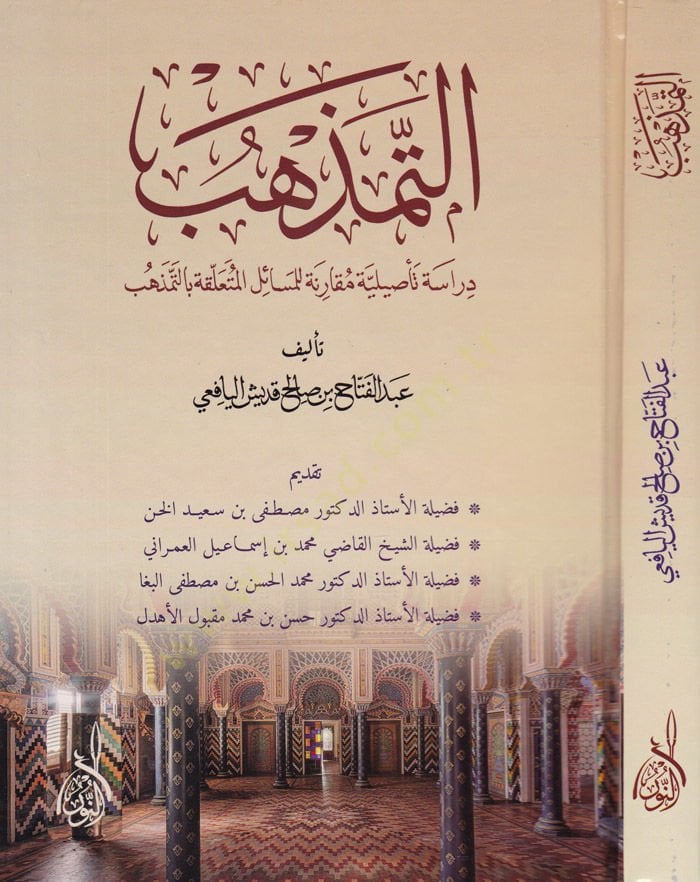 التَّمَذْهُبُ
دِرَاسَة تَأصيليَّة مُقارِنَة للمَسَائِل المُتَعَلِّقة بالتَّمَذْهُبُ
تأليف
عَبد الفَتَّاح بن صَالح قديش اليَافعي
تقديم
* فضيلة الأستاذ الدكتور مصطفى بن سعيد الخن
* فضيلة الشيخ القاضي محمد بن إسماعيل العمراني
* فضيلة الأستاذ الدكتور محمد الحسن بن مصطفى البغا
* فضيلة الأستاذ الدكتور حسن بن محمد مقبول الأهدل
النُّور
التَّمَذْهُبُ
عَبد الفَتَّاح بن صَالح قديش اليَافعي
النُّور